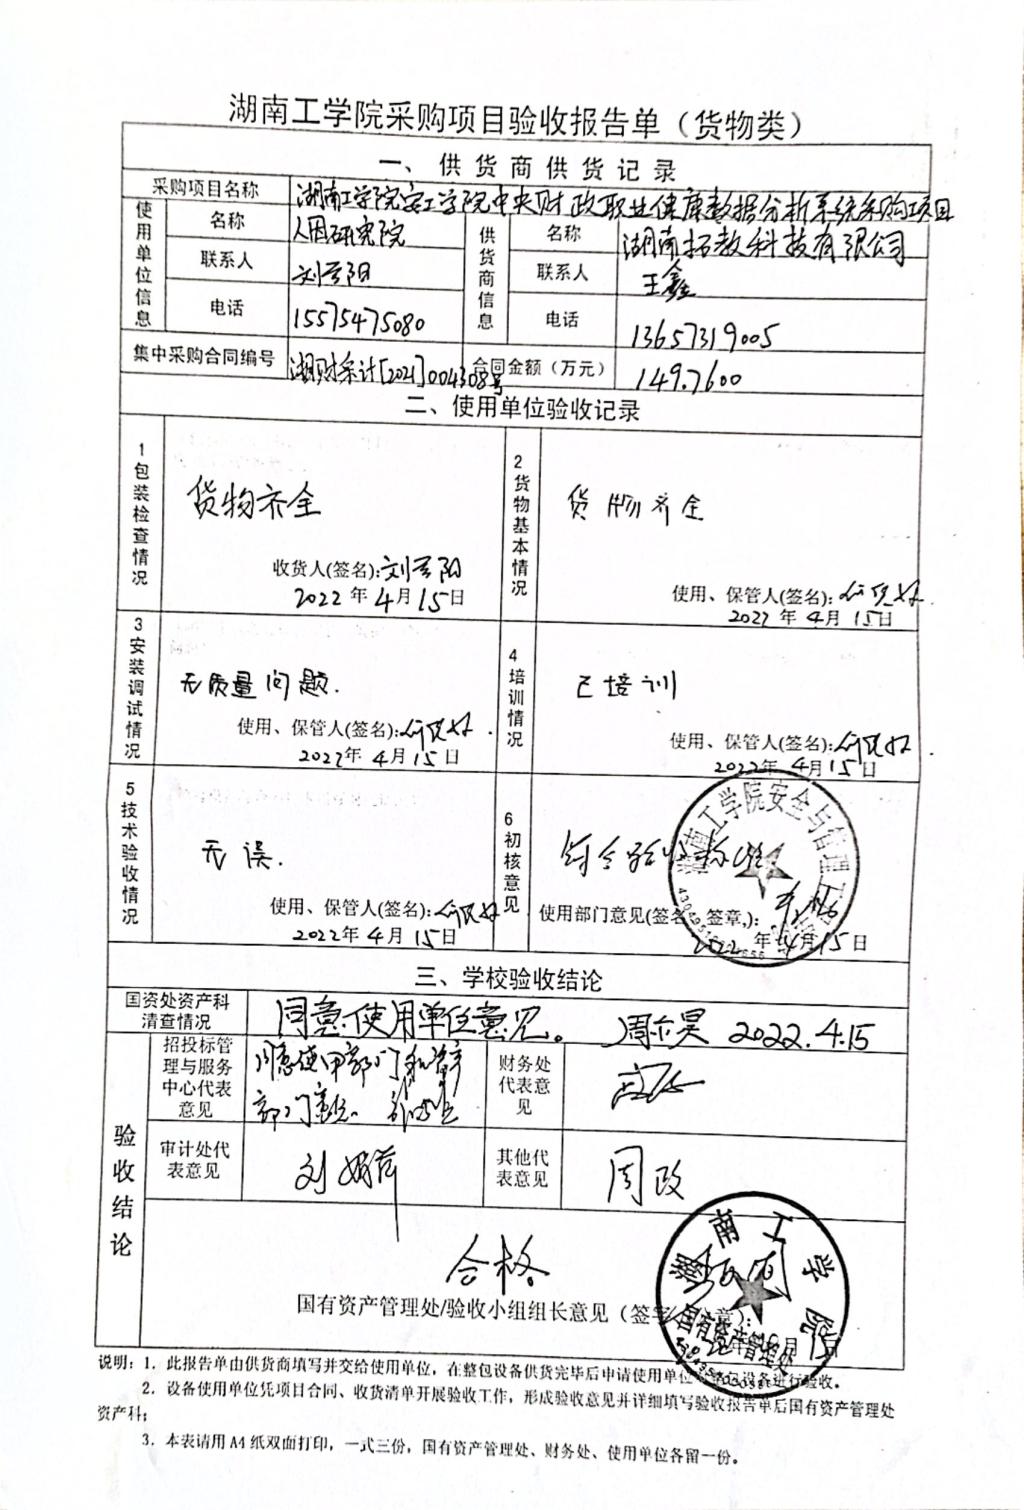 湖南工学院采购项目验收报告单（货物类）
一、供货商供货记录
采购项目名称 湖南工学院安工学院中央财政职业健康数据分析系统采购项目
使用单位信息 名称 人因研究院 供货商信息 名称 湖南拓教科技有限公司
联系人 联系人 王鑫
电话 15575475080 电话 13657319005
集中采购合同编号 湖财采计[2021]004308号 合同金额（万元） 149.7600
二、使用单位验收记录
1包装检查情况 货物齐全
收货人(签名):
2022年4月15日
2货物基本情况 货物齐全
使用、保管人(签名):
2022年4月15日
3安装调试情况 无质量问题.
使用、保管人(签名):
2022年4月15日
4培训情况 已培训
使用、保管人(签名):
2022年4月15日
5技术验收情况 无误.
使用、保管人(签名):
2022年4月15日
6初核意见 符合验收标准
使用部门意见(签名、签章,):
2022年4月15日
湖南工学院安全与管理工
三、学校验收结论
国资处资产科清查情况 同意使用单位意见。 2022.4.15
验收结论
招投标管理与服务中心代表意见 同意使用部门和资产
部门意见.
财务处代表意见
审计处代表意见 刘
其他代表意见 周政
合格
国有资产管理处/验收小组组长意见（签字/签章）:
湖南工学院
国有资产管理处
说明：1．此报告单由供货商填写并交给使用单位，在整包设备供货完毕后申请使用单位对整包设备进行验收。
2．设备使用单位凭项目合同、收货清单开展验收工作，形成验收意见并详细填写验收报告单后国有资产管理处
资产科；
3．本表请用A4纸双面打印，一式三份，国有资产管理处、财务处、使用单位各留一份。